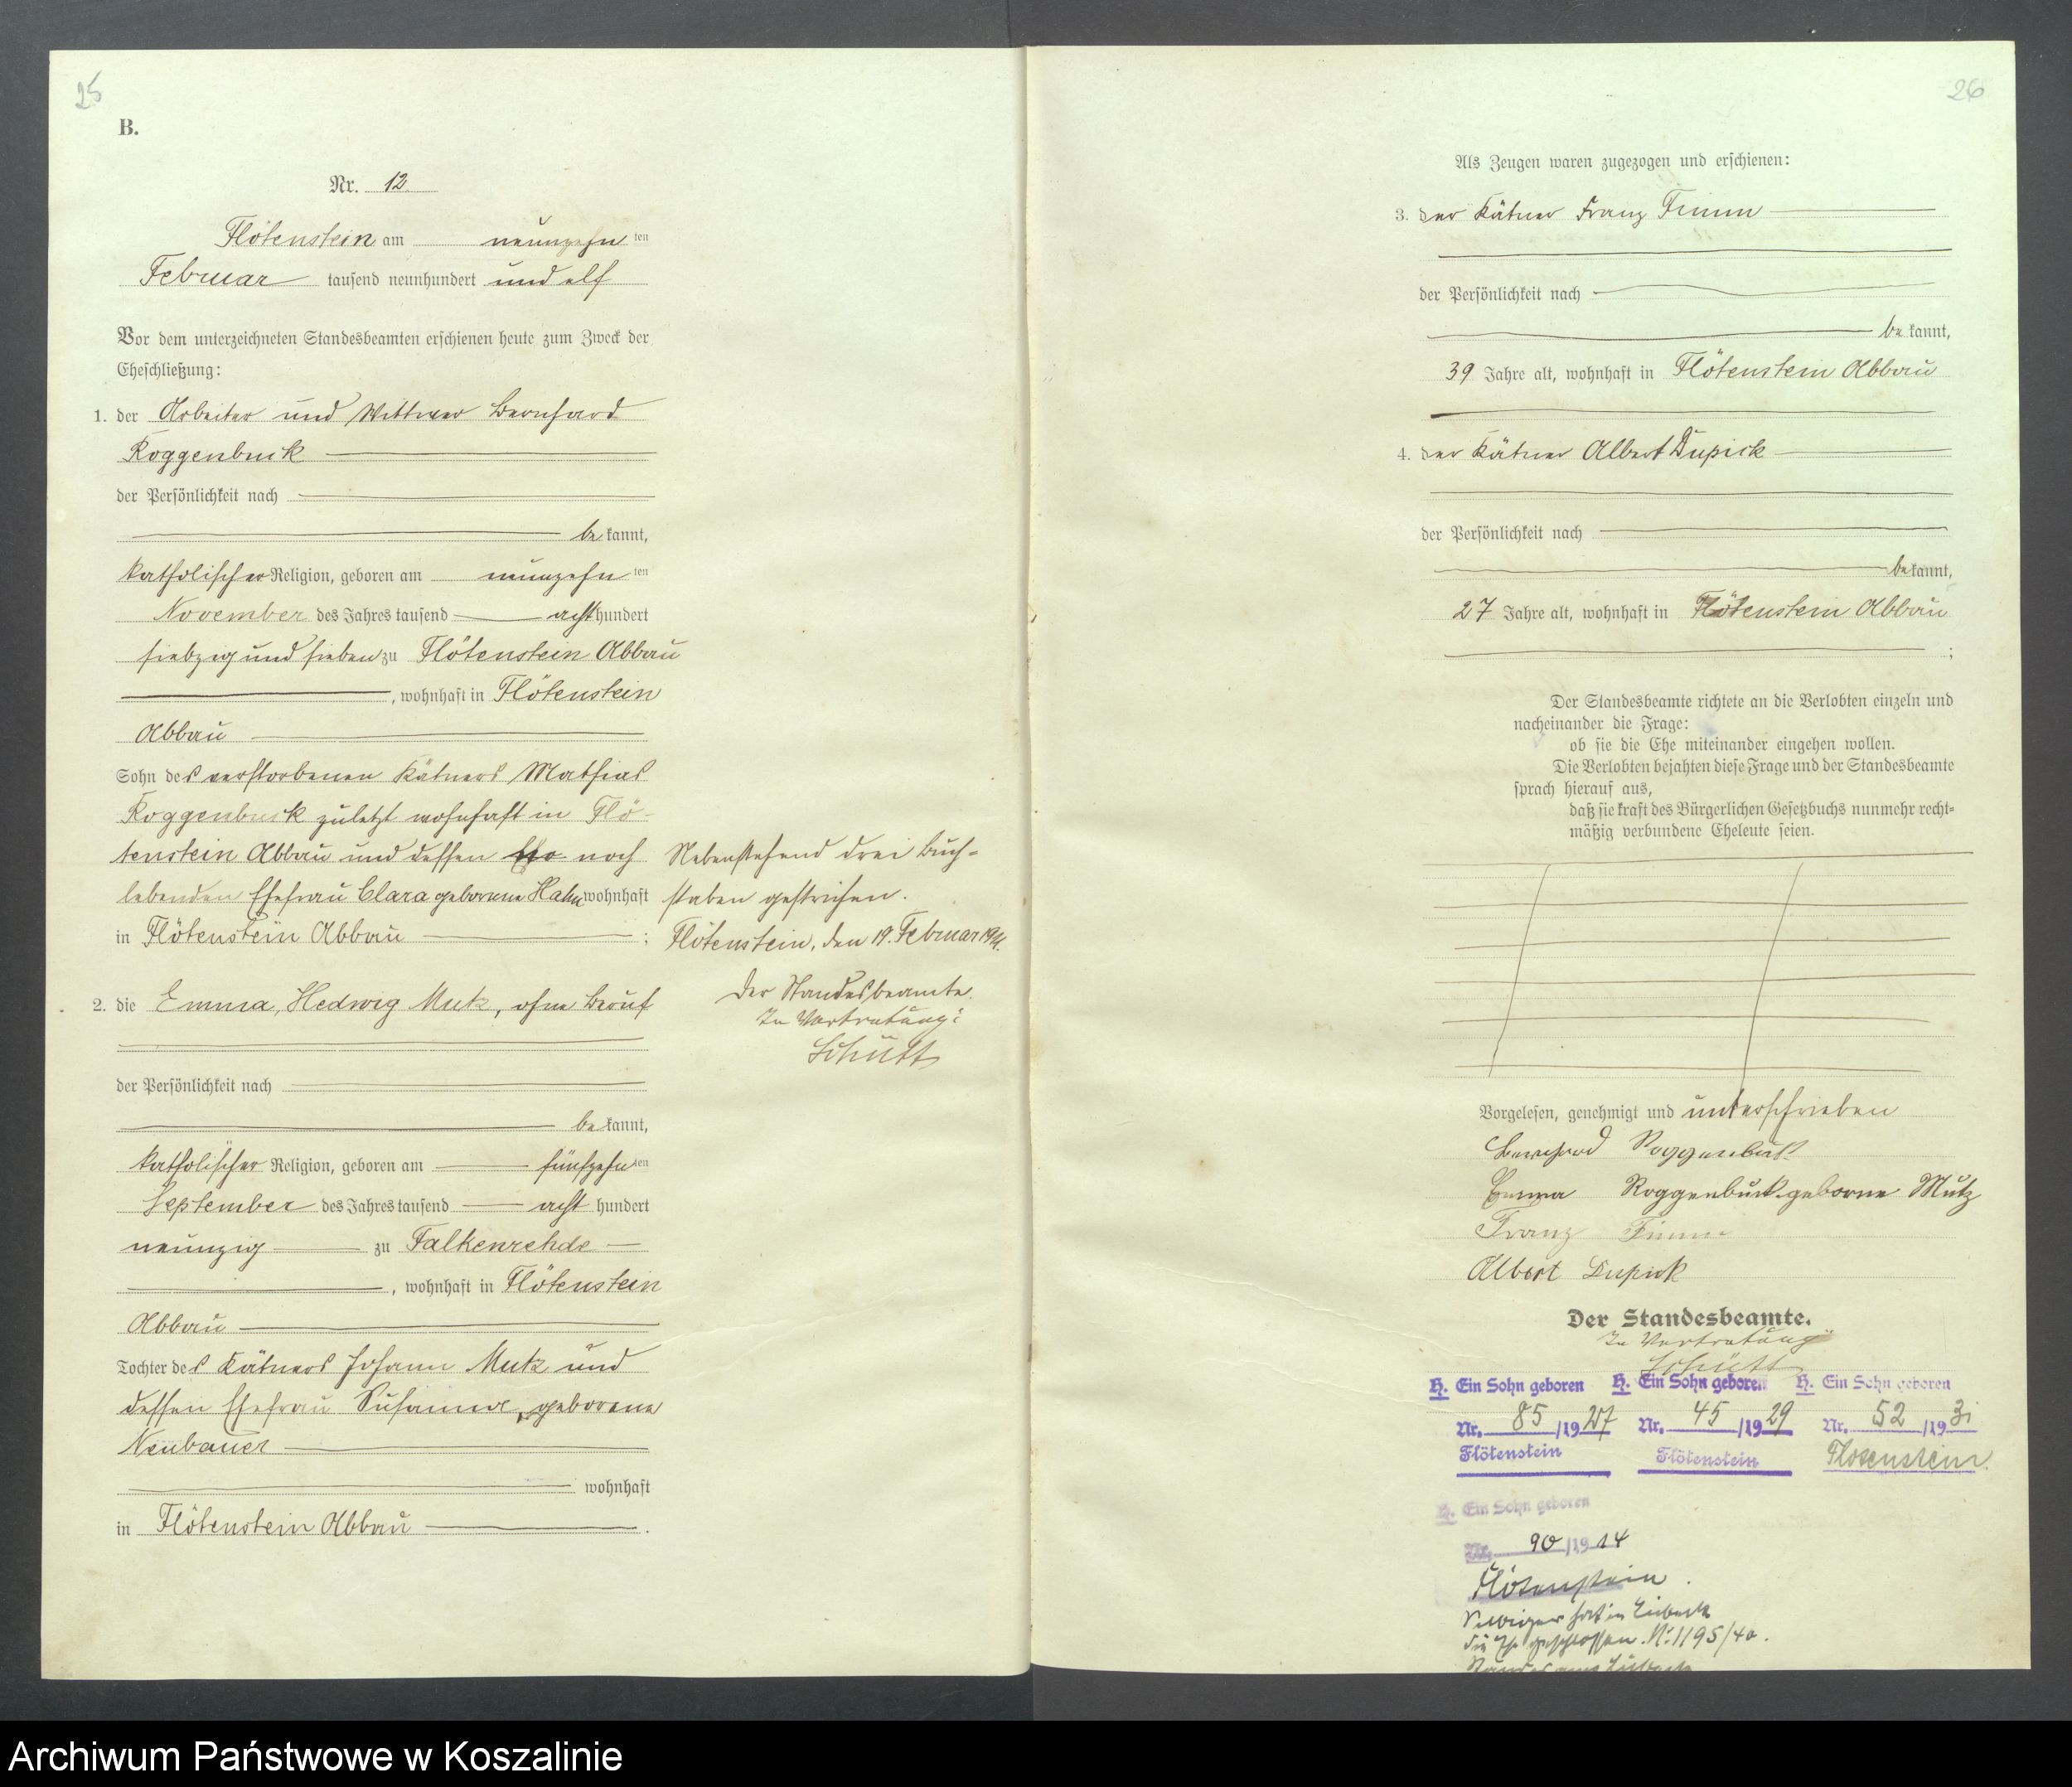 25
B.
Nr. 12
Flötenstein am neunzehnten
Februar tausend neunhundert und elf
Vor dem unterzeichneten Standesbeamten erschienen heute zum Zweck der
Eheschließung:
1. der Arbeiter und Wittwer Bernhard
Roggenbuck
der Persönlichkeit nach
bekannt,
katholischer Religion, geboren am neunzehnten
November des Jahres tausend achthundert
siebzig und sieben zu Flötenstein Abbau
, wohnhaft in Flötenstein
Abbau
Sohn des verstorbenen Kätners Mathias
Roggenbuck zuletzt wohnhaft in Flö-
tenstein Abbau und dessen noch
lebenden Ehefrau Clara geborene Hahn wohnhaft
in Flötenstein Abbau ;
Nebenstehend drei Buch-
staben gestrichen.
Flötenstein, den 19. Februar 1911.
Der Standesbeamte.
In Vertretung:
Schütt
2. die Emma, Hedwig Mutz, ohne Beruf
der Persönlichkeit nach
bekannt,
katholischer Religion, geboren am fünfzehnten
September des Jahres tausend acht hundert
neunzig zu Falkenrehde
, wohnhaft in Flötenstein
Abbau
Tochter des Kätners Johann Mutz und
dessen Ehefrau Susanne, geborene
Neubauer
wohnhaft
in Flötenstein Abbau .
26
Als Zeugen waren zugezogen und erschienen:
3. der Kätner Franz Timm
der Persönlichkeit nach
bekannt,
39 Jahre alt, wohnhaft in Flötenstein Abbau
4. der Kätner Albert Dupick
der Persönlichkeit nach
bekannt,
27 Jahre alt, wohnhaft in Flötenstein Abbau
;
Der Standesbeamte richtete an die Verlobten einzeln und
nacheinander die Frage:
ob sie die Ehe miteinander eingehen wollen.
Die Verlobten bejahten diese Frage und der Standesbeamte
sprach hierauf aus,
daß sie kraft des Bürgerlichen Gesetzbuchs nunmehr recht-
mäßig verbundene Eheleute seien.
Vorgelesen, genehmigt und unterschrieben
Bernhard Roggenbuck
Emma Roggenbuck geborne Mutz
Franz Timm
Albert Dupick
Der Standesbeamte.
In Vertretung
Schütt
H. Ein Sohn geboren
Nr. 85/1927
Flötenstein
H. Ein Sohn geboren
Nr. 45/1929
Flötenstein
H. Ein Sohn geboren
Nr. 52/1931
Flötenstein.
H. Ein Sohn geboren
Nr. 90/1914
Flötenstein.
hat in Lübeck
die Ehe geschlossen. Nr. 1195/40.
Standesamt Lübeck
Archiwum Państwowe w Koszalinie